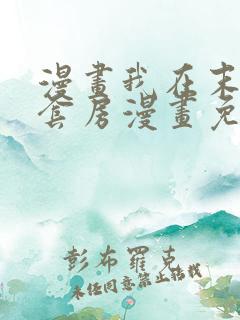 漫畫我在末
套房漫畫免
彭布羅克
未经同意禁止转载